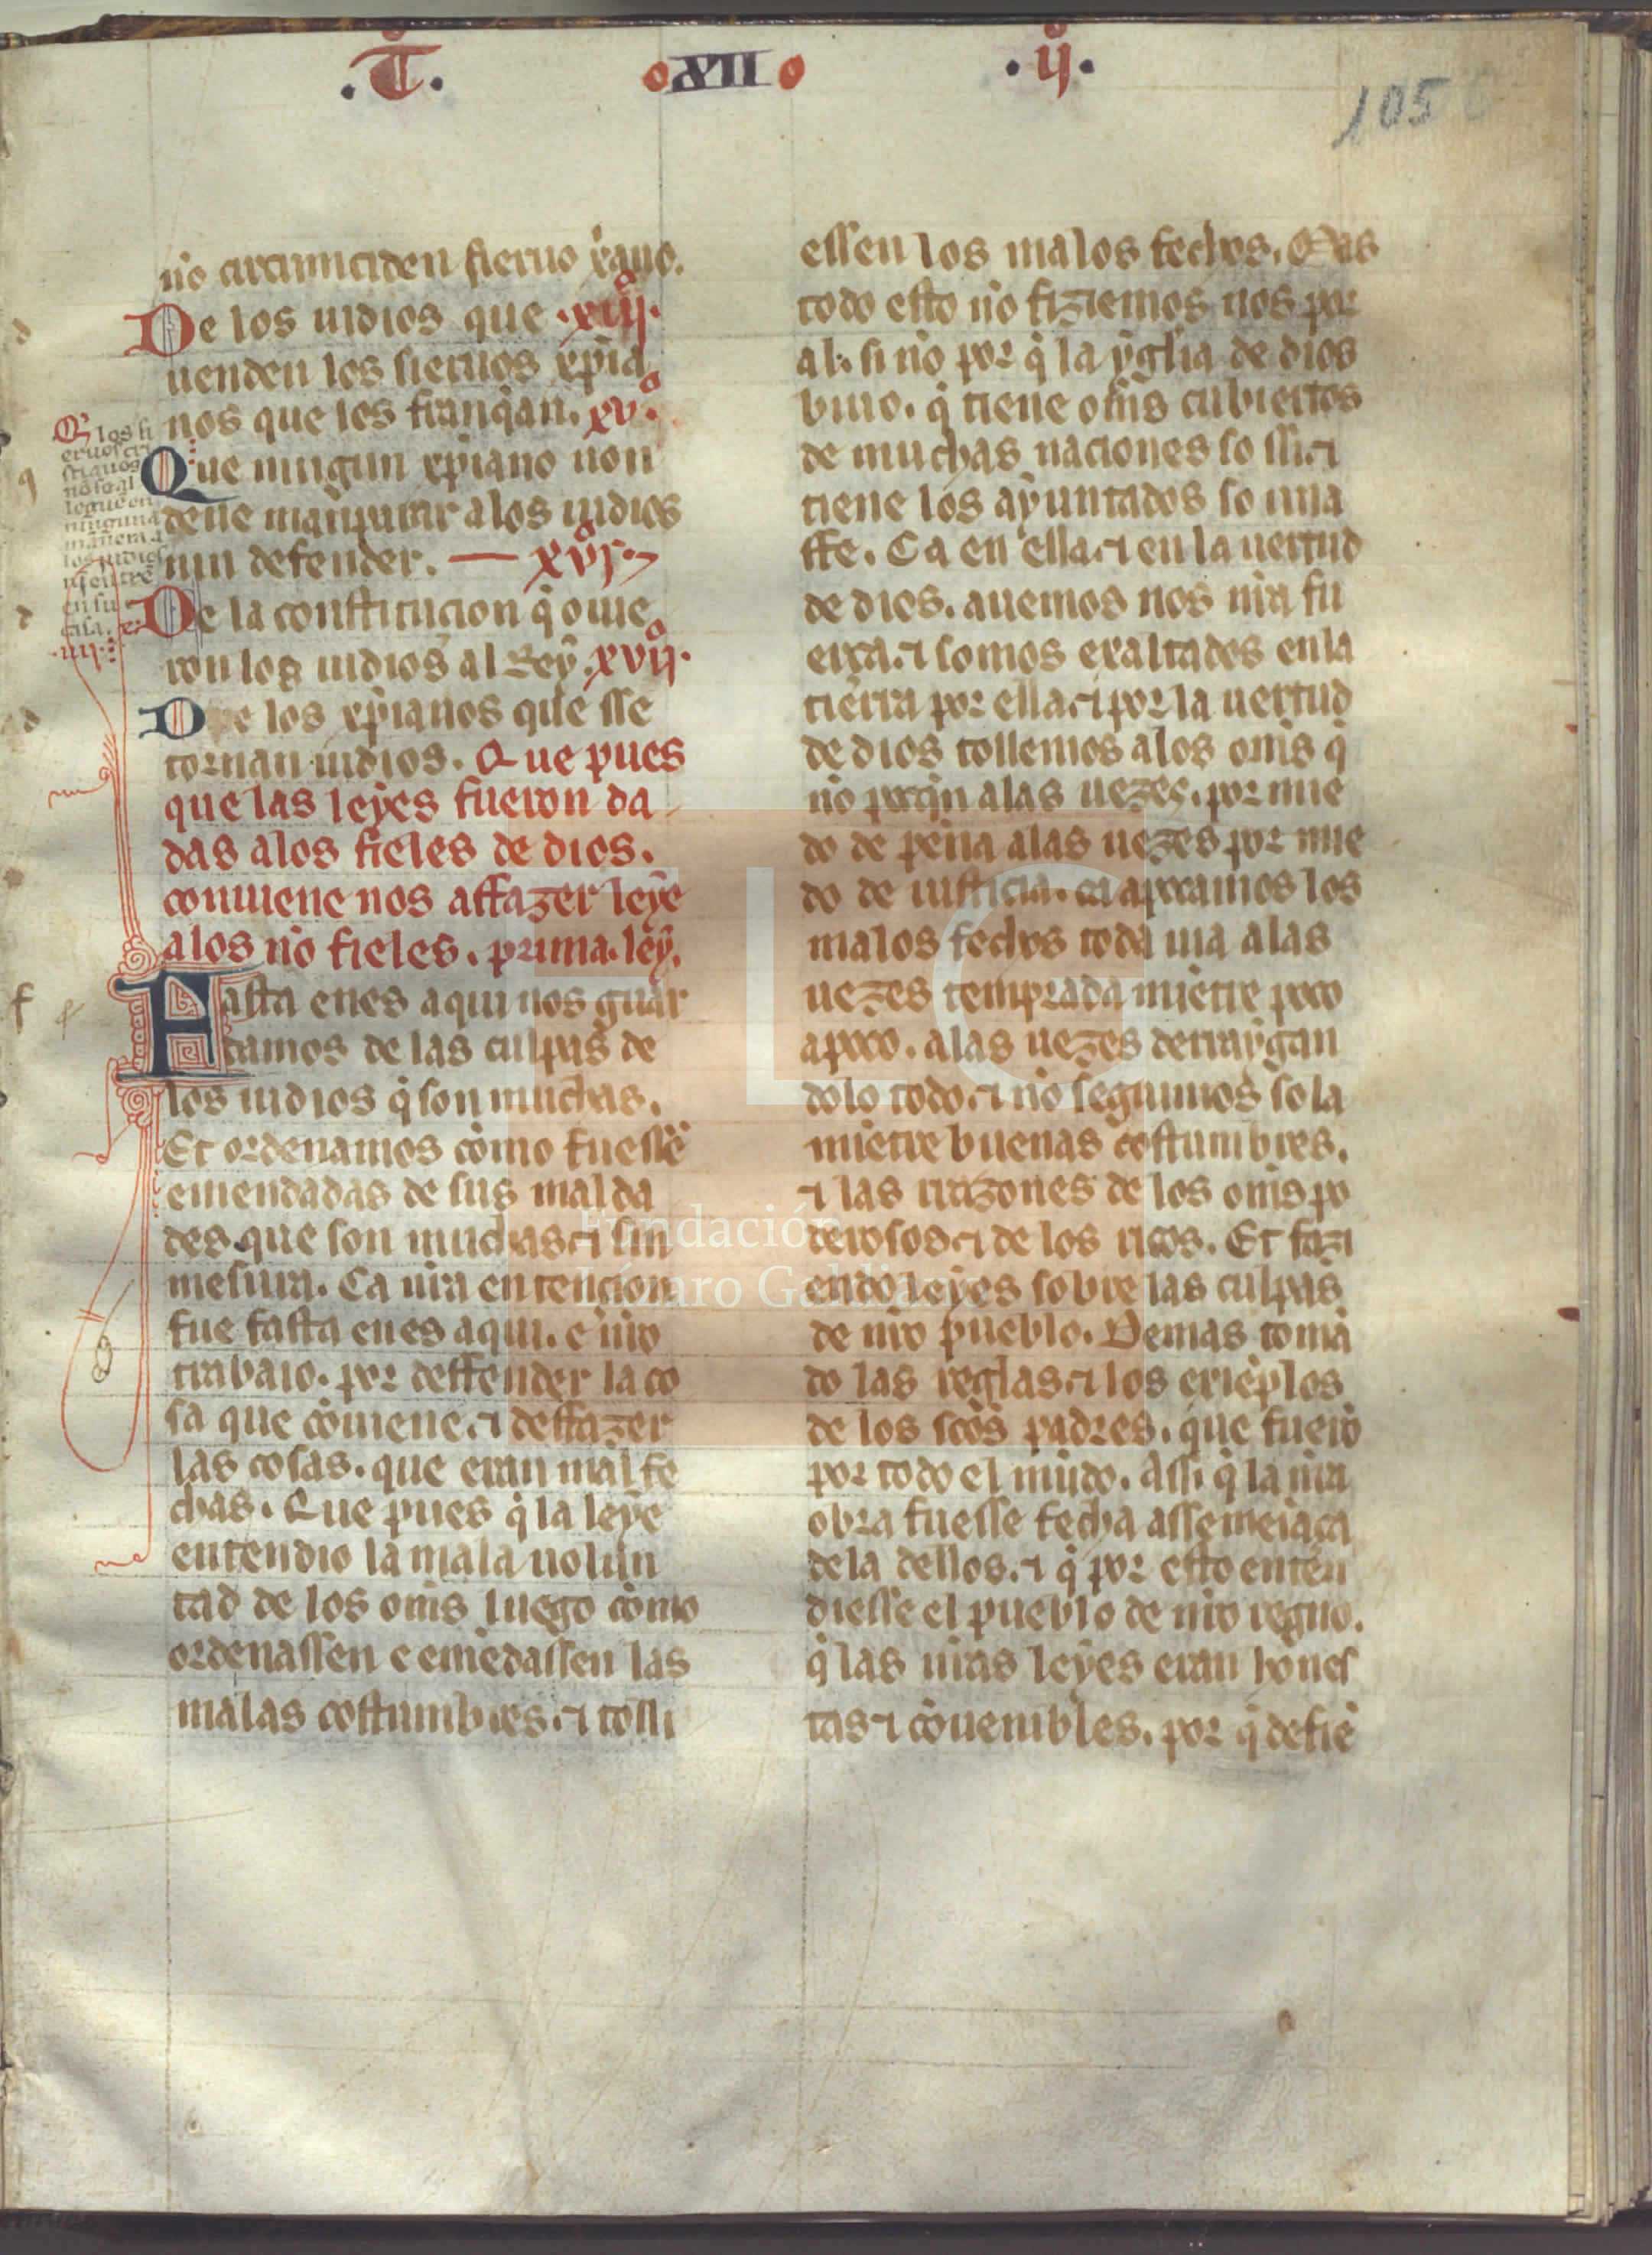 .T. XII .ij.
105
no circunciden sieruo xano.
De los iudios que .xiiij.
uenden los sieruos xpia
nos que les franq̃an. xv.
Que ningun xpiano non
deue manparar a los iudios
nin defender. xvj.
De la constitucion q̃ ouie
ron los iudios al Rey. xvij.
De los xpianos que sse
tornan iudios. Que pues
que las leyes fueron da
das alos fieles de dios.
conuiene nos affazer leye
alos no fieles. prima. ley.
Fasta enes aqui nos guar
damos de las culpas de
los iudios q̃ son muchas.
Et ordenamos como fuessẽ
emendadas de sus malda
des que son muchas ⁊ sin
mesura. Ca nr̃a entencion
fue fasta enes aqui. e nr̃o
trabaio. por deffender la co
sa que cõuiene. ⁊ deffazer
las cosas. que eran mal fe
chas. Que pues q̃ la leye
entendio la mala uolun
tad de los om̃s luego como
ordenassen e emẽdassen las
malas costumbres. ⁊ tolli
Q̃ los si
eruos cri
stianos
no se al
leguen en
ninguna
manera a
los iudios
ni entrẽ
en su
casa.
essen los malos fechos. Mas
todo esto no fiziemos nos por
al. si no por q̃ la yglia de dios
biuo. q̃ tiene om̃s cubiertos
de muchas naciones so ssi. ⁊
tiene los ayuntados so una
ffe. Ca en ella. ⁊ en la uertud
de dios. auemos nos nr̃a fu
erça. ⁊ somos exaltados en la
tierra por ella. ⁊ por la uertud
de dios tollemos a los om̃s q̃
no pecq̃n a las uezes. por mie
do de pena a las uezes por mie
do de iusticia. ca apocamos los
malos fechos toda uia a las
uezes temprada mietre poco
a poco. a las uezes derraygan
dolo todo. ⁊ no seguimos sola
mietre buenas costumbres.
⁊ las razones de los om̃s po
derosos ⁊ de los ricos. Et fazi
endo leyes sobre las culpas
de nr̃o pueblo. Demas toma
do las reglas ⁊ los exiẽplos
de los scõs padres. que fuerõ
por todo el mũdo. Assi q̃ la nr̃a
obra fuesse fecha assemeiaça
de la dellos. ⁊ q̃ por esto enten
diesse el pueblo de nr̃o regno.
q̃ las nr̃as leyes eran hones
tas ⁊ cõuenibles. por q̃ defiẽ
FLG
Fundación
Lázaro Galdiano